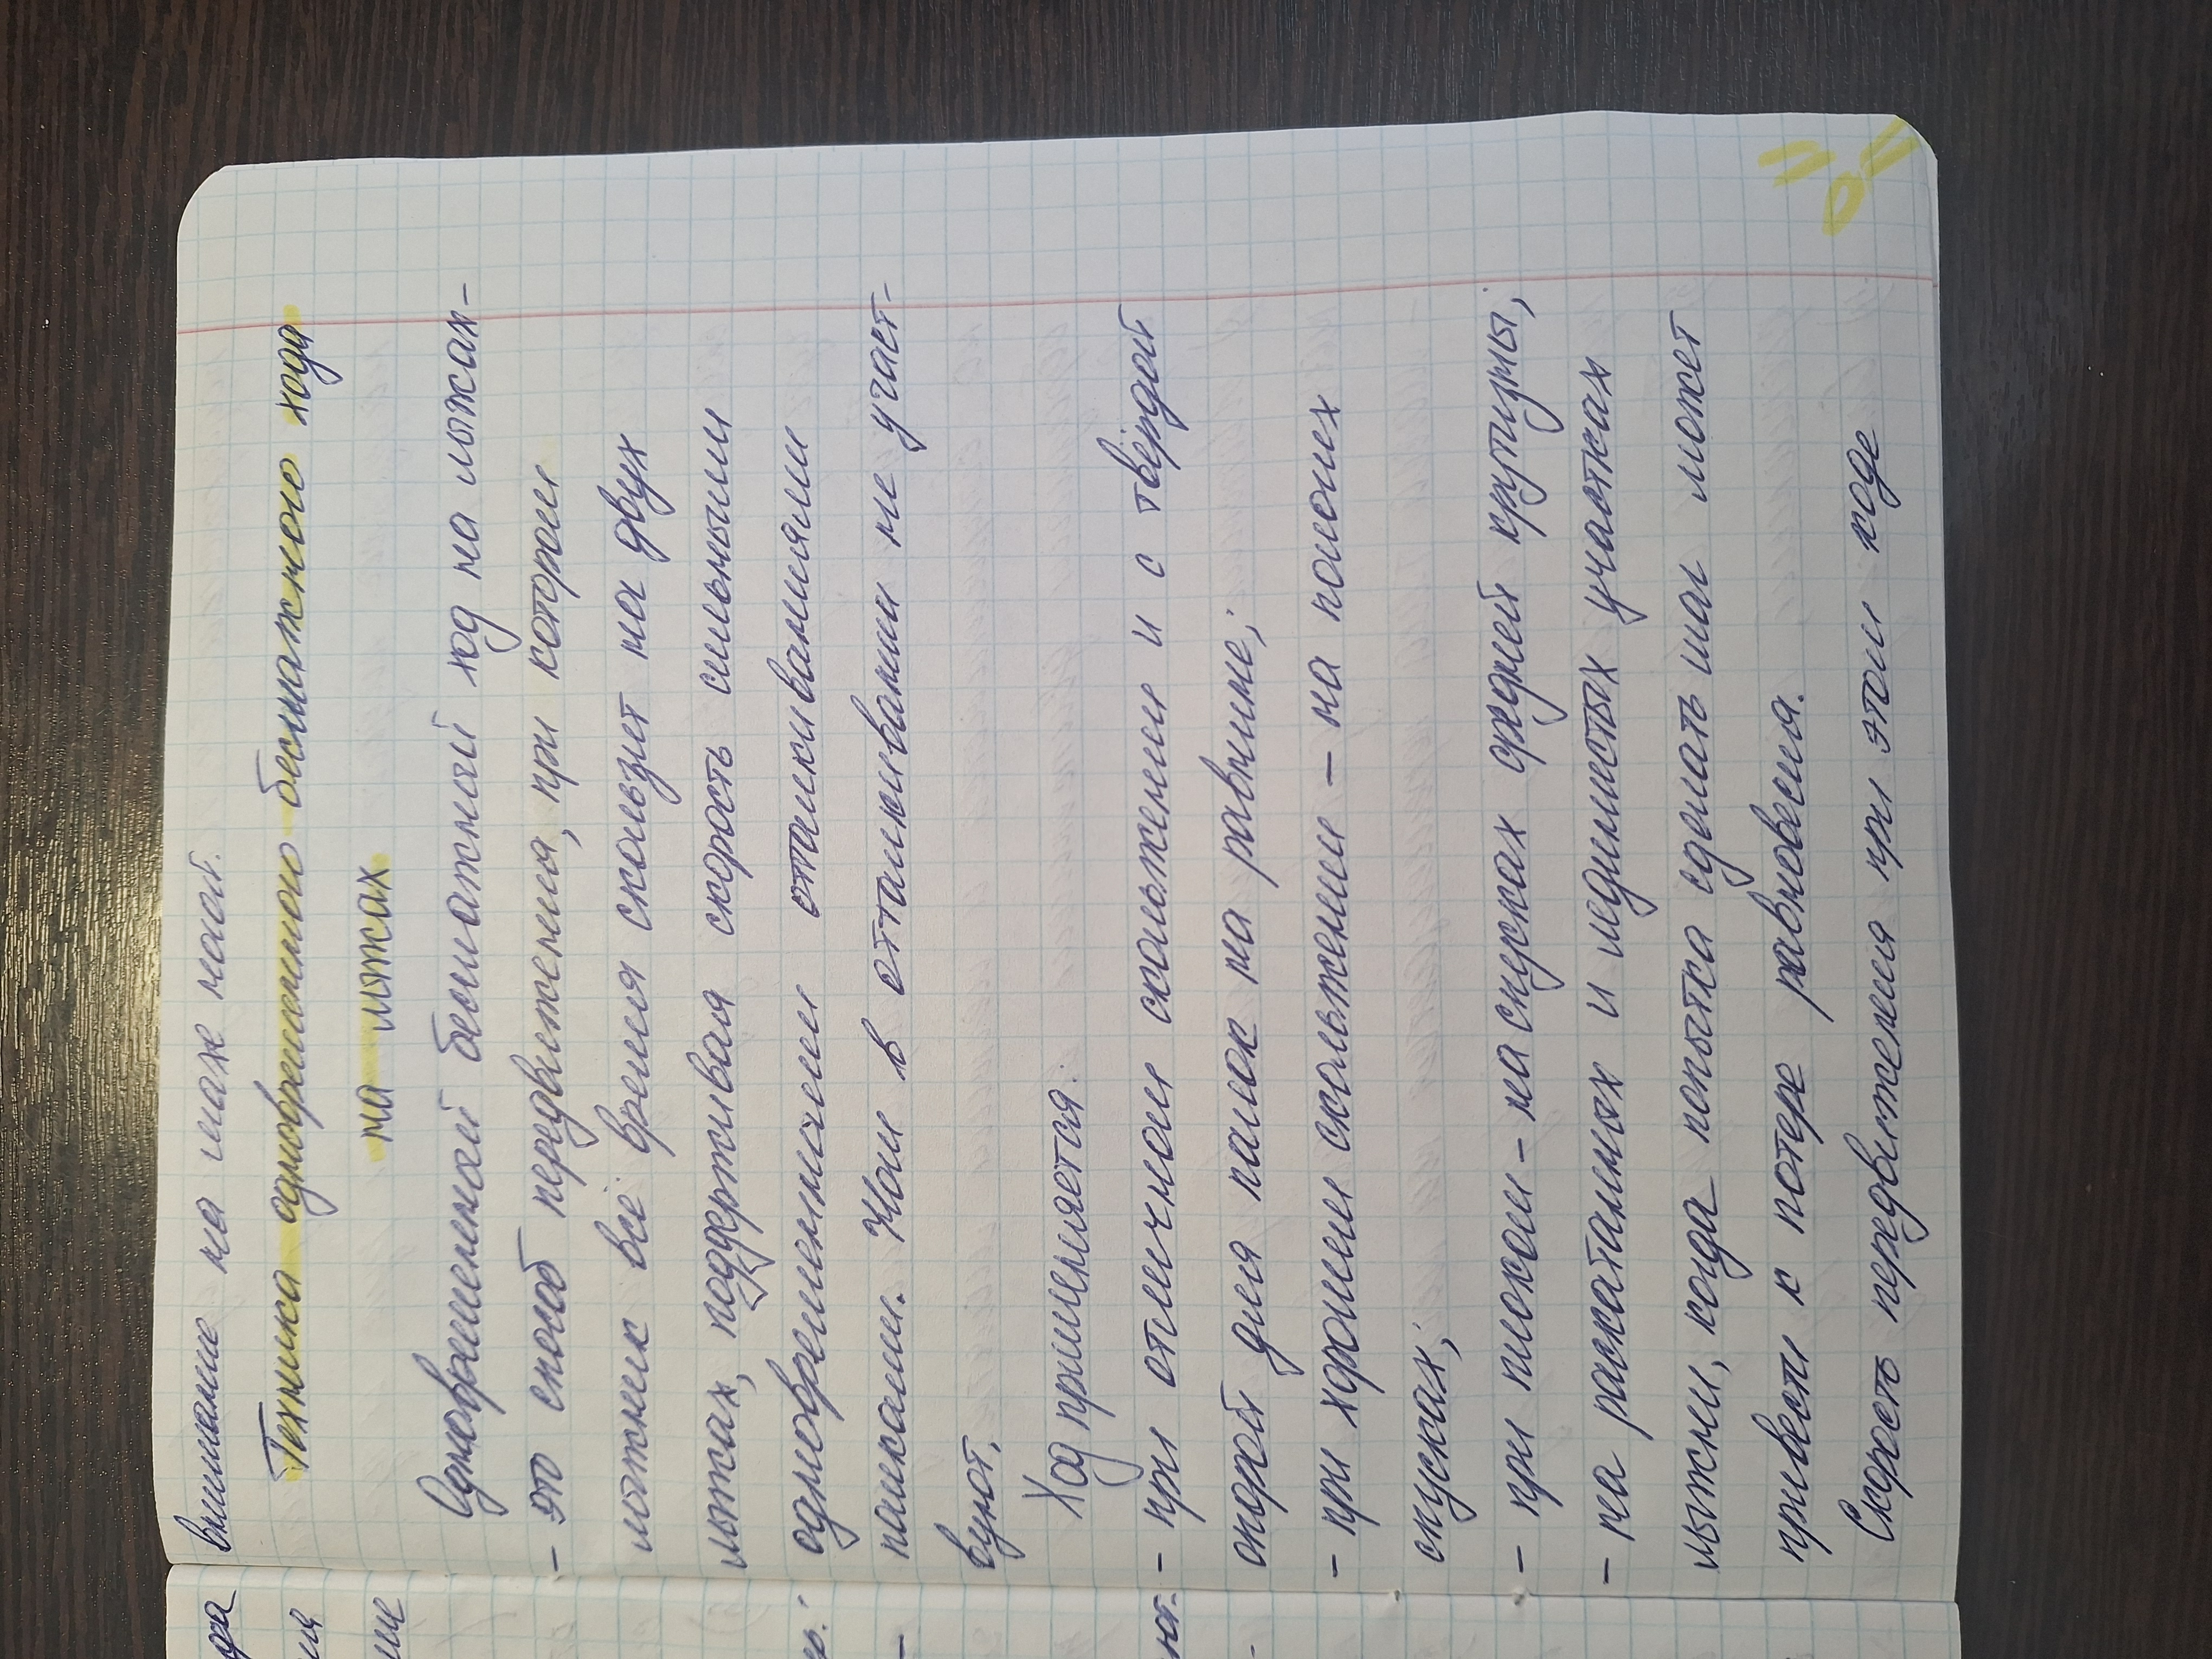 внимание на шаж мааг.
Техника одновременного бесшажного хода
на лыжах
Одновременный бесшажный ход на лыжах -
- это способ передвижения, при котором
лыжник всё время скользит на двух
лыжах, поддерживая скорость сильными
одновременными отталкиваниями
палками. Ноги в отталкивании не участ-
вуют.
Ход применяется:
- при отличном скольжении и с твёрдой
опорой для палок на равнине;
- при хорошем скольжении - на пологих
спусках;
- при плохом - на спусках средней крутизны;
- на раскатанных и леднистых участках
лыжни, когда попытка сделать шаг может
привести к потере равновесия.
Скорость передвижения при этом ходе
ра
ия
ие
ю.